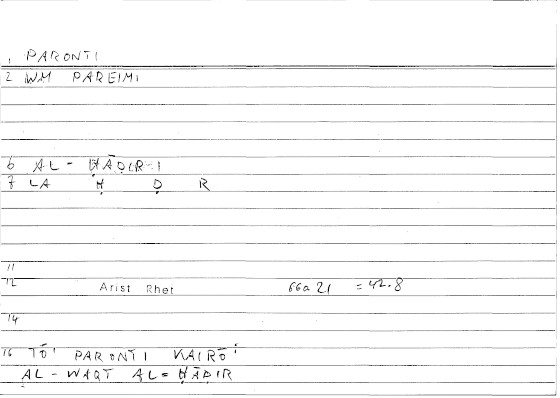 1 PARONTI
2 WM PAREIMI
6 AL - ḤĀḌIR-I
7 LA Ḥ Ḍ R
11
12 Arist Rhet 66a 21 = 42.8
14
16 TŌI PARONTI KAIRŌI
AL - WAQT AL = ḤĀḌIR